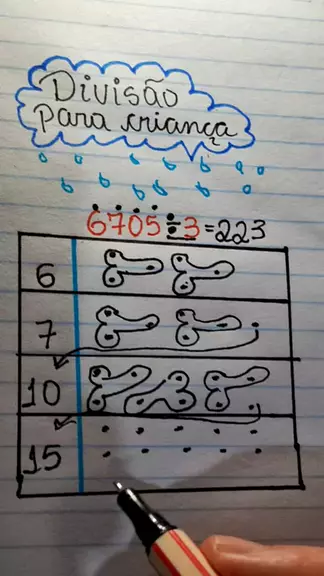 Divisão
para criança
6705÷3=223
6
7
10
15